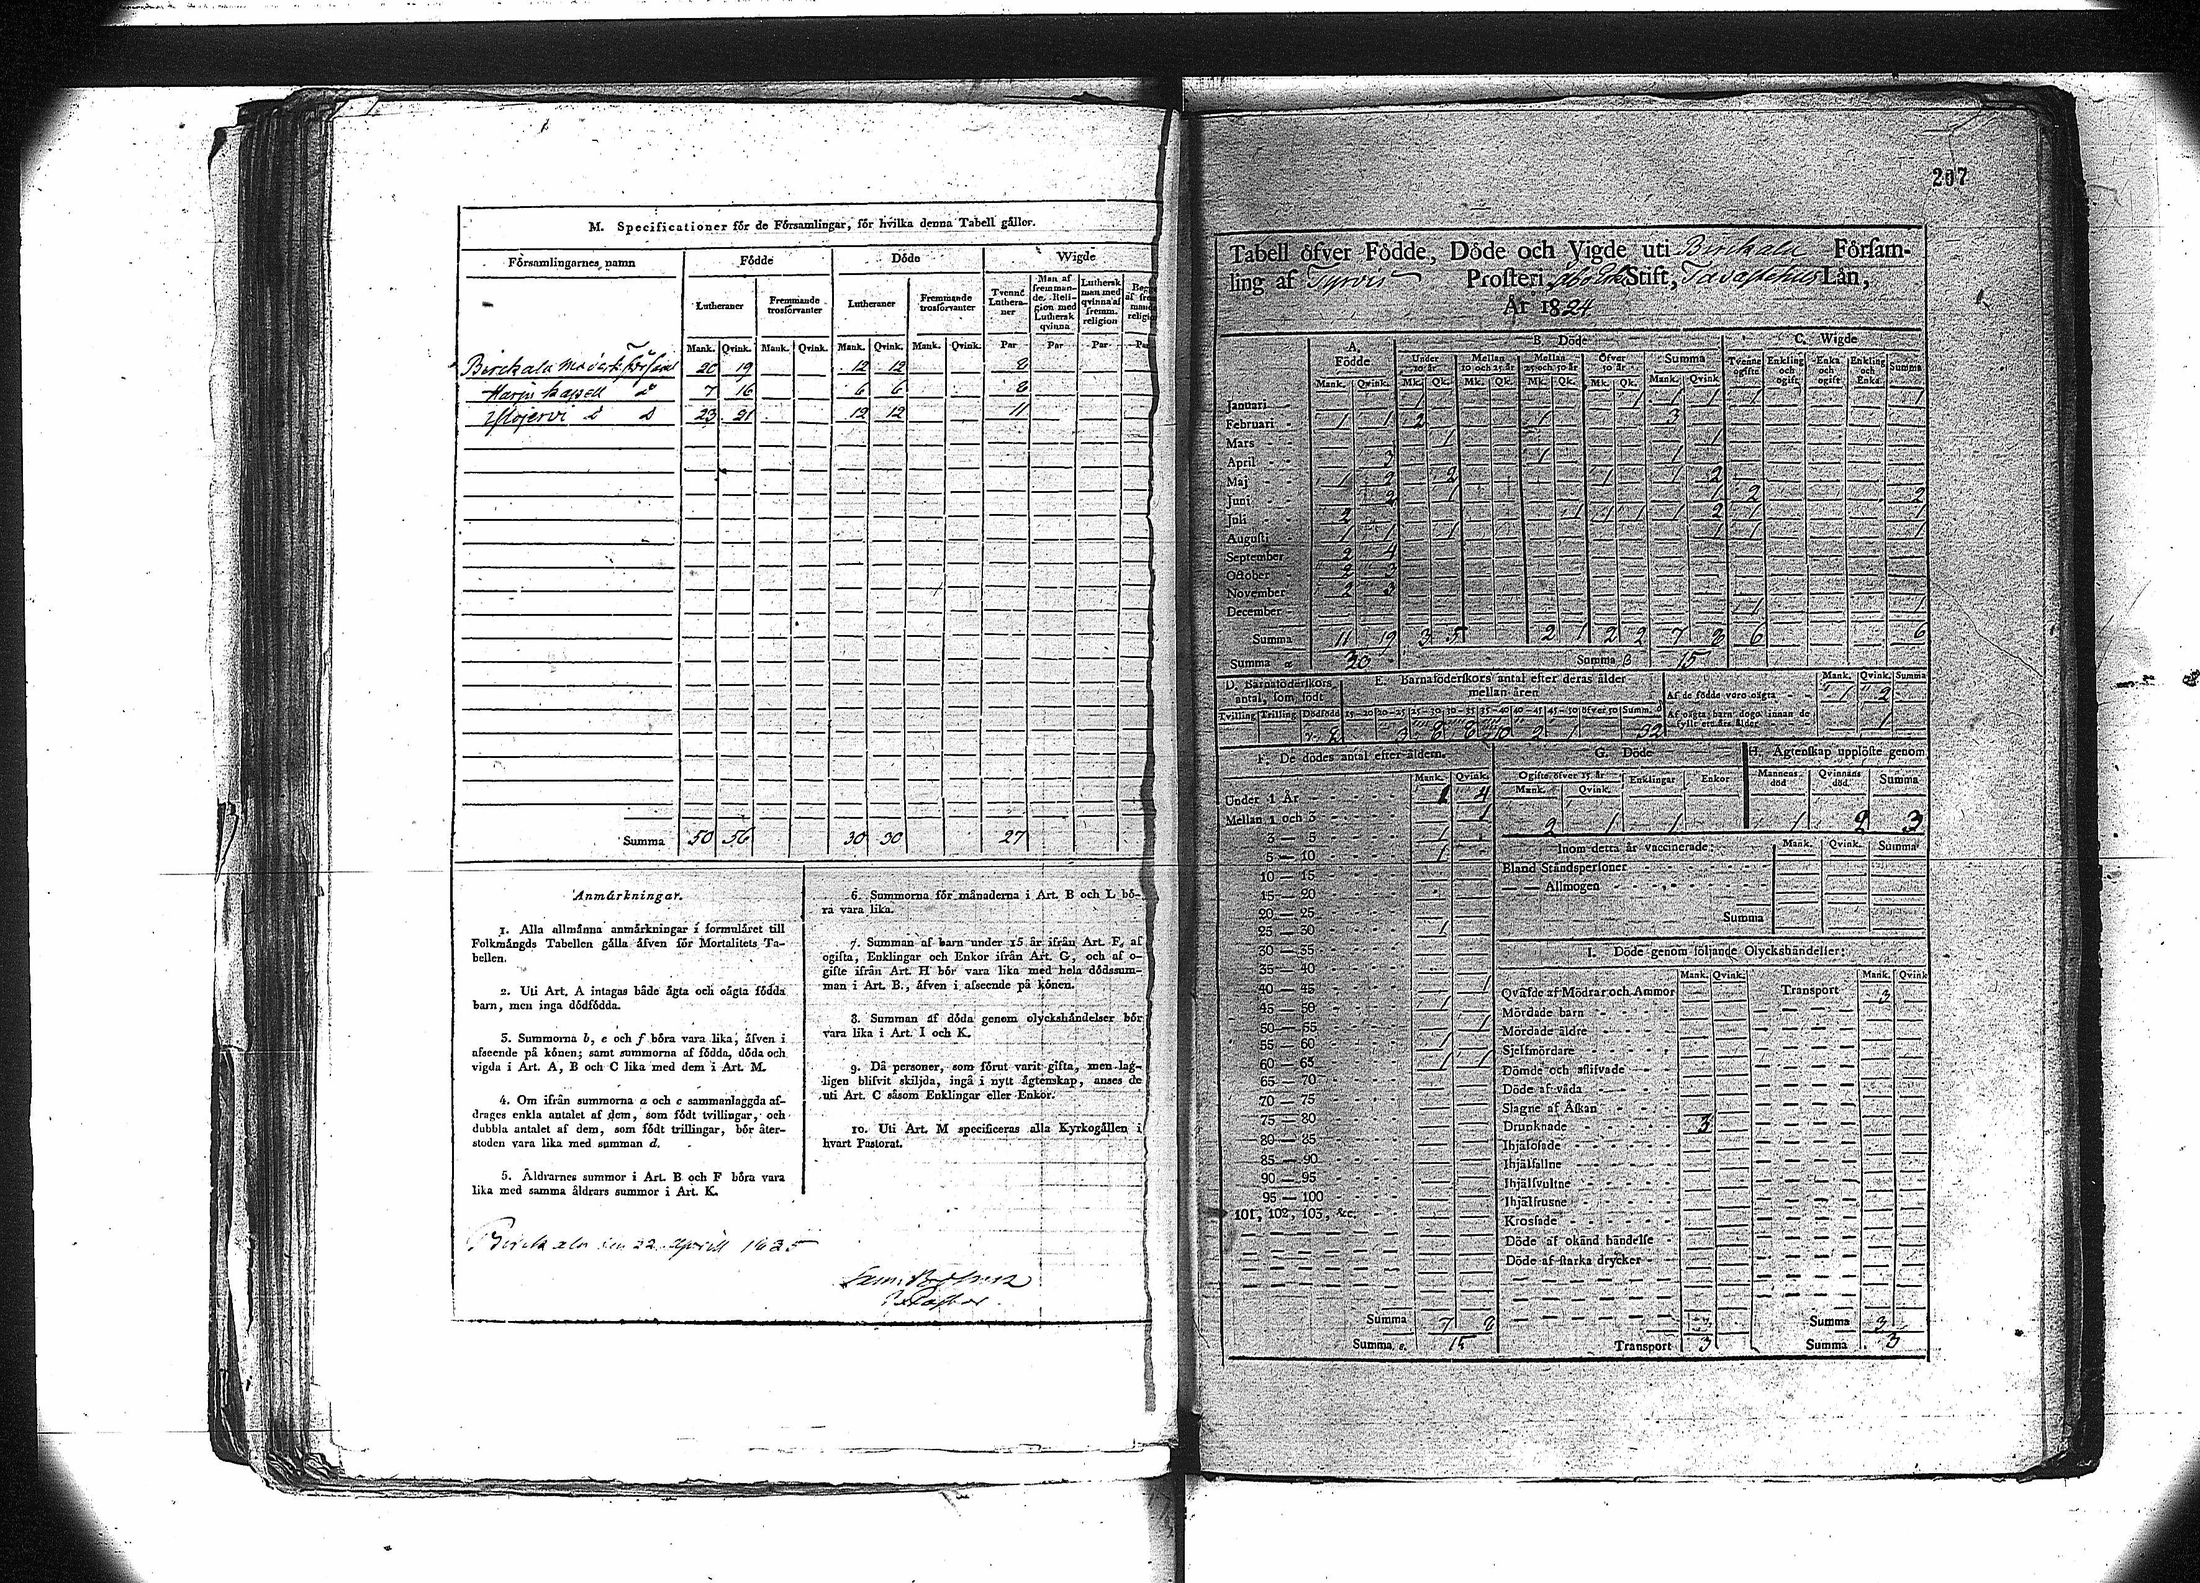 M. Specificationer för de Församlingar, för hvilka denna Tabell gäller.
Församlingarnes namn
Födde
Döde
Wigde
Lutheraner
Fremmande trosförvanter
Lutheraner
Fremmande trosförvanter
Tvenne Lutheraner
Man af fremmande Religion med Luthersk qvinna
Luthersk man med qvinna af fremm. religion
Mank. Qvink. Mank. Qvink. Mank. Qvink. Mank. Qvink. Par Par Par
Birckala Moderk: Församl 20 19 12 12 8
Harju kapell d 7 16 6 6 8
Ylöjervi d d 23 21 12 12 11
Summa 50 56 30 30 27
Anmärkningar.
1. Alla allmänna anmärkningar i formuläret till
Folkmängds Tabellen gälla äfven för Mortalitets Ta-
bellen.
2. Uti Art. A intagas både ägta och oägta födda
barn, men inga dödfödda.
3. Summorna b, e och f böra vara lika, äfven i
afseende på könen; samt summorna af födda, döda och
vigda i Art. A, B och C lika med dem i Art. M.
4. Om ifrån summorna a och c sammanlaggda af-
drages enkla antalet af dem, som födt tvillingar, och
dubbla antalet af dem, som födt trillingar, bör åter-
stoden vara lika med summan d.
5. Åldrarnes summor i Art. B och F böra vara
lika med samma åldrars summor i Art. K.
6. Summorna för månaderna i Art. B och L bö-
ra vara lika.
7. Summan af barn under 15 år ifrån Art. F, af
ogifta, Enklingar och Enkor ifrån Art. G, och af o-
gifte ifrån Art. H bör vara lika med hela dödssum-
man i Art. B., äfven i afseende på könen.
8. Summan af döda genom olyckshändelser bör
vara lika i Art. I och K.
9. Då personer, som förut varit gifta, men lag-
ligen blifvit skiljda, ingå i nytt ägtenskap, anses de
uti Art. C såsom Enklingar eller Enkor.
10. Uti Art. M specificeras alla Kyrkogällen i
hvart Pastorat.
Birckala den 22 Aprill 1825
207
Tabell öfver Födde, Döde och Vigde uti Birckala Församling
af Tyrvis Prosteri, Åbo Stift, Tavastehus Län,
År 1824
A. Födde
B. Döde
C. Wigde
Under 10 år
Mellan 10 och 25 år
Mellan 25 och 50 år
Öfver 50 år
Summa
Tvenne ogifte
Enkling och ogift
Enka och ogift
Enkling och Enka
Summa
Mank. Qvink. Mk. Qk. Mk. Qk. Mk. Qk. Mk. Qk. Mank. Qvink
Januari 1 1 1 1 1 1
Februari 1 1 2 1 3
Mars 1 1
April 3 1 1
Maj 1 2 2 1 1 2
Juni 2 1 1 2 2
Juli 2 1 1 1 1 2 1 1
Augusti 1 1 1 1 1 1
September 2 4
October 2 3
November 2 3
December 1 1
Summa 11 19 3 5 2 1 2 2 7 8 6 6
Summa α 30 Summa β 15
D. Barnaföderskors antal, som födt
E. Barnaföderskors antal efter deras ålder mellan åren
Tvilling Trilling Dödfödd 15—20 20—25 25—30 30—35 35—40 40—45 45—50 öfver 50 Summ. δ
Mank. Qvink. Summa
Af de födde voro oägta 1 2
Af oägta barn dogo innan de fyllt ett års ålder 1
F. De dödes antal efter åldern.
Mank. Qvink.
Under 1 År 1 4
Mellan 1 och 3 1
3 — 5 1
5 — 10 1
10 — 15
15 — 20
20 — 25
25 — 30 1
30 — 35
35 — 40
40 — 45 1 1
45 — 50
50 — 55 1
55 — 60 1
60 — 65 1 1
65 — 70
70 — 75
75 — 80
80 — 85
85 — 90
90 — 95
95 — 100
101, 102, 103, &c.
Summa 7 8
Summa ε. 15
G. Döde
Ogifte öfver 15 år Enklingar Enkor
Mank. Qvink.
2 1 1
H. Ägtenskap upplöste genom
Mannens död Qvinnans död. Summa
1 2 3
Inom detta år vaccinerade: Mank. Qvink. Summa
Bland Ståndspersoner
— — Allmogen
Summa
I. Döde genom följande Olyckshändelser:
Mank. Qvink. Mank. Qvink
Qväfde af Mödrar och Ammor Transport 3
Mördade barn
Mördade äldre
Sjelfmördare
Dömde och aflifvade
Döde af våda
Slagne af Åskan
Drunknade 3
Ihjälösade
Ihjälfallne
Ihjälsvultne
Ihjälfrusne
Krossade
Döde af okänd händelse
Döde af starka drycker
3 Summa 3
Transport 3 Summa 3